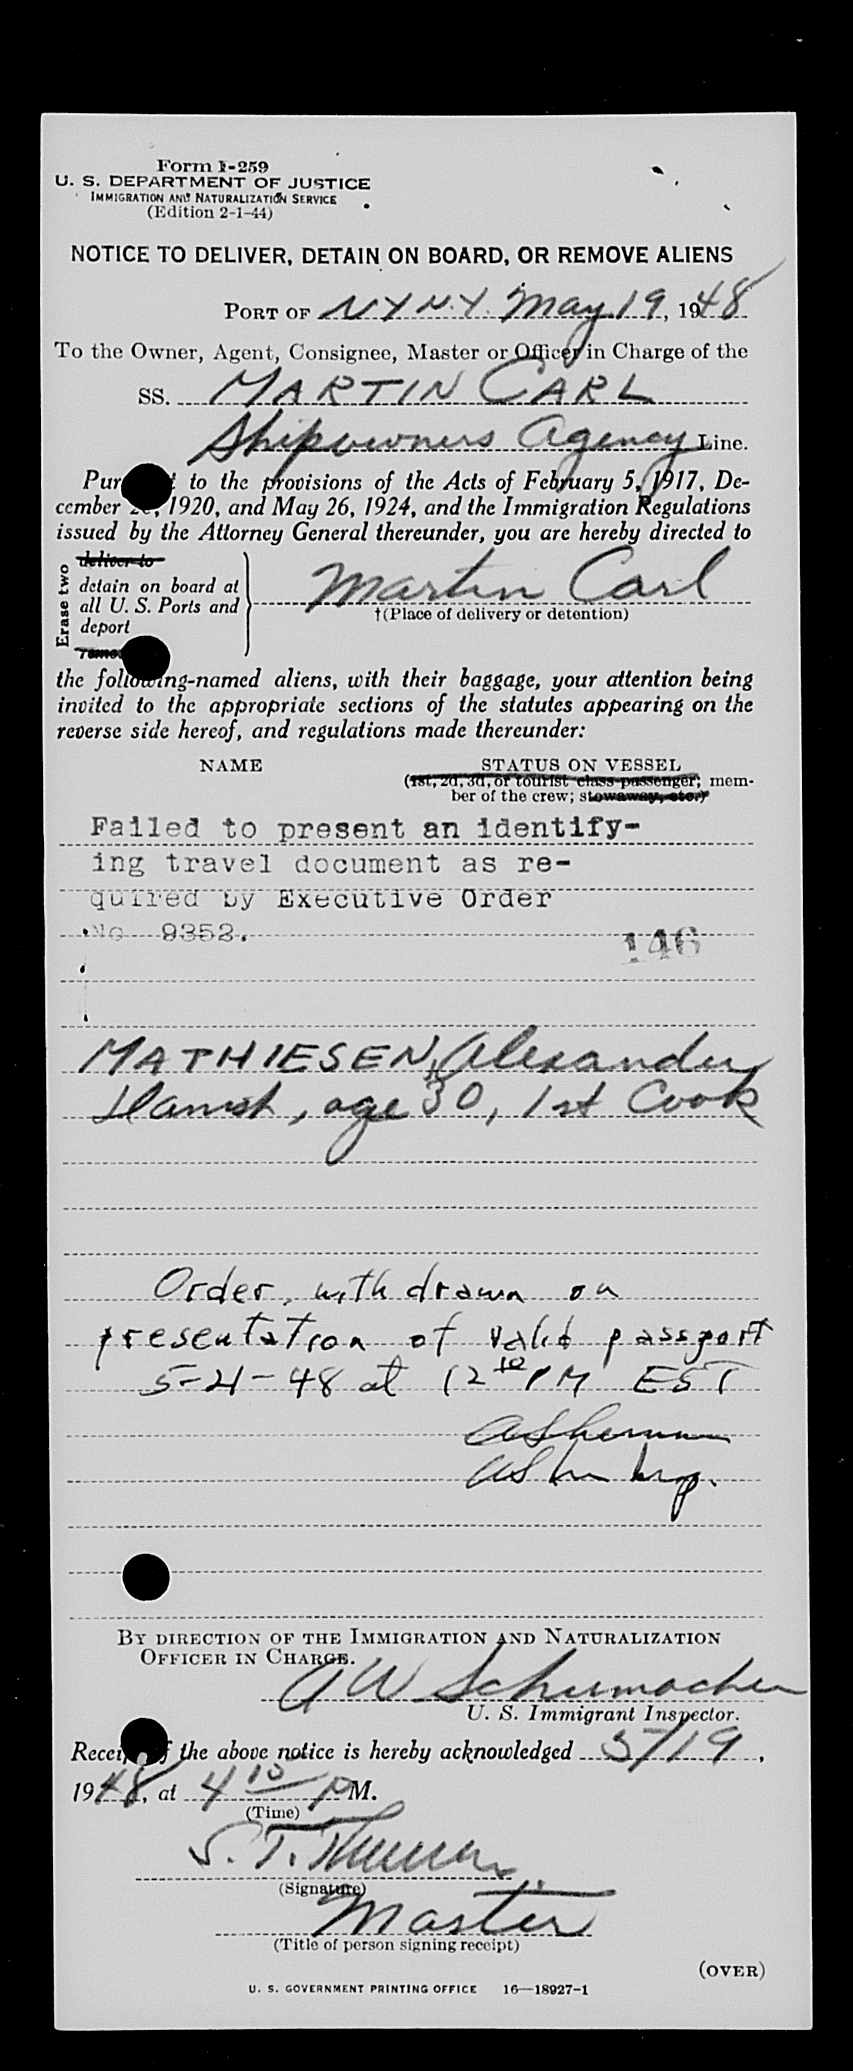 Form I-259
U. S. DEPARTMENT OF JUSTICE
IMMIGRATION AND NATURALIZATION SERVICE
(Edition 2-1-44)
NOTICE TO DELIVER, DETAIN ON BOARD, OR REMOVE ALIENS
PORT OF N Y N.Y. May 19, 1948
To the Owner, Agent, Consignee, Master or Officer in Charge of the
SS. MARTIN CARL
Shipowners Agency Line.
Pur t to the provisions of the Acts of February 5, 1917, De-
cember 20, 1920, and May 26, 1924, and the Immigration Regulations
issued by the Attorney General thereunder, you are hereby directed to
Erase two
deliver to
detain on board at
all U. S. Ports and
deport
Martin Carl
†(Place of delivery or detention)
the following-named aliens, with their baggage, your attention being
invited to the appropriate sections of the statutes appearing on the
reverse side hereof, and regulations made thereunder:
NAME STATUS ON VESSEL
(1st, 2d, 3d, or tourist class passenger; mem-
ber of the crew; stowaway, etc.)
Failed to present an identify-
ing travel document as re-
quired by Executive Order
No 9352.
146
MATHIESEN, Alexander
Danish, age 30, 1st Cook
Order withdrawn on
presentation of valid passport
5-21-48 at 12 10 PM EST
ASherman
BY DIRECTION OF THE IMMIGRATION AND NATURALIZATION
OFFICER IN CHARGE.
A W Schumacher
U. S. Immigrant Inspector.
Receipt of the above notice is hereby acknowledged 5/19,
1948, at 4 10 PM.
(Time)
S. T.
(Signature)
Master
(Title of person signing receipt)
(OVER)
U. S. GOVERNMENT PRINTING OFFICE 16—18927-1